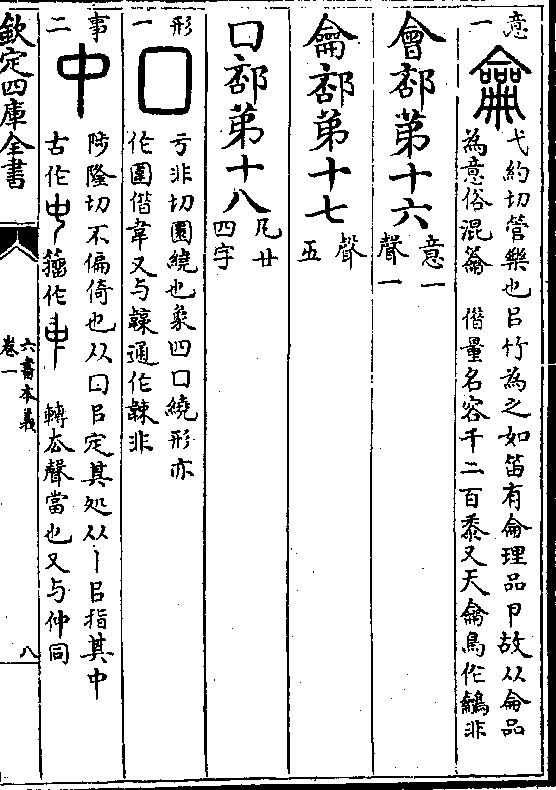 意一 龠 弋約切管樂也㠯竹為之如笛有侖理品吅故从侖品
為意俗混籥 借量名容千二百黍又天龠鳥作鸙非
會部第十六 意一
聲一
龠部第十七 聲
五
囗部第十八 凡廿
四字
形一 囗 亏非切圜繞也象四囗繞形亦
作圍借韋又与韓通作韎非
事二 中 陟隆切不偏倚也从囗㠯定其処从丨㠯指其中
古作 籀作 轉去聲當也又与仲同
欽定四庫全書
六書本義
卷一
八